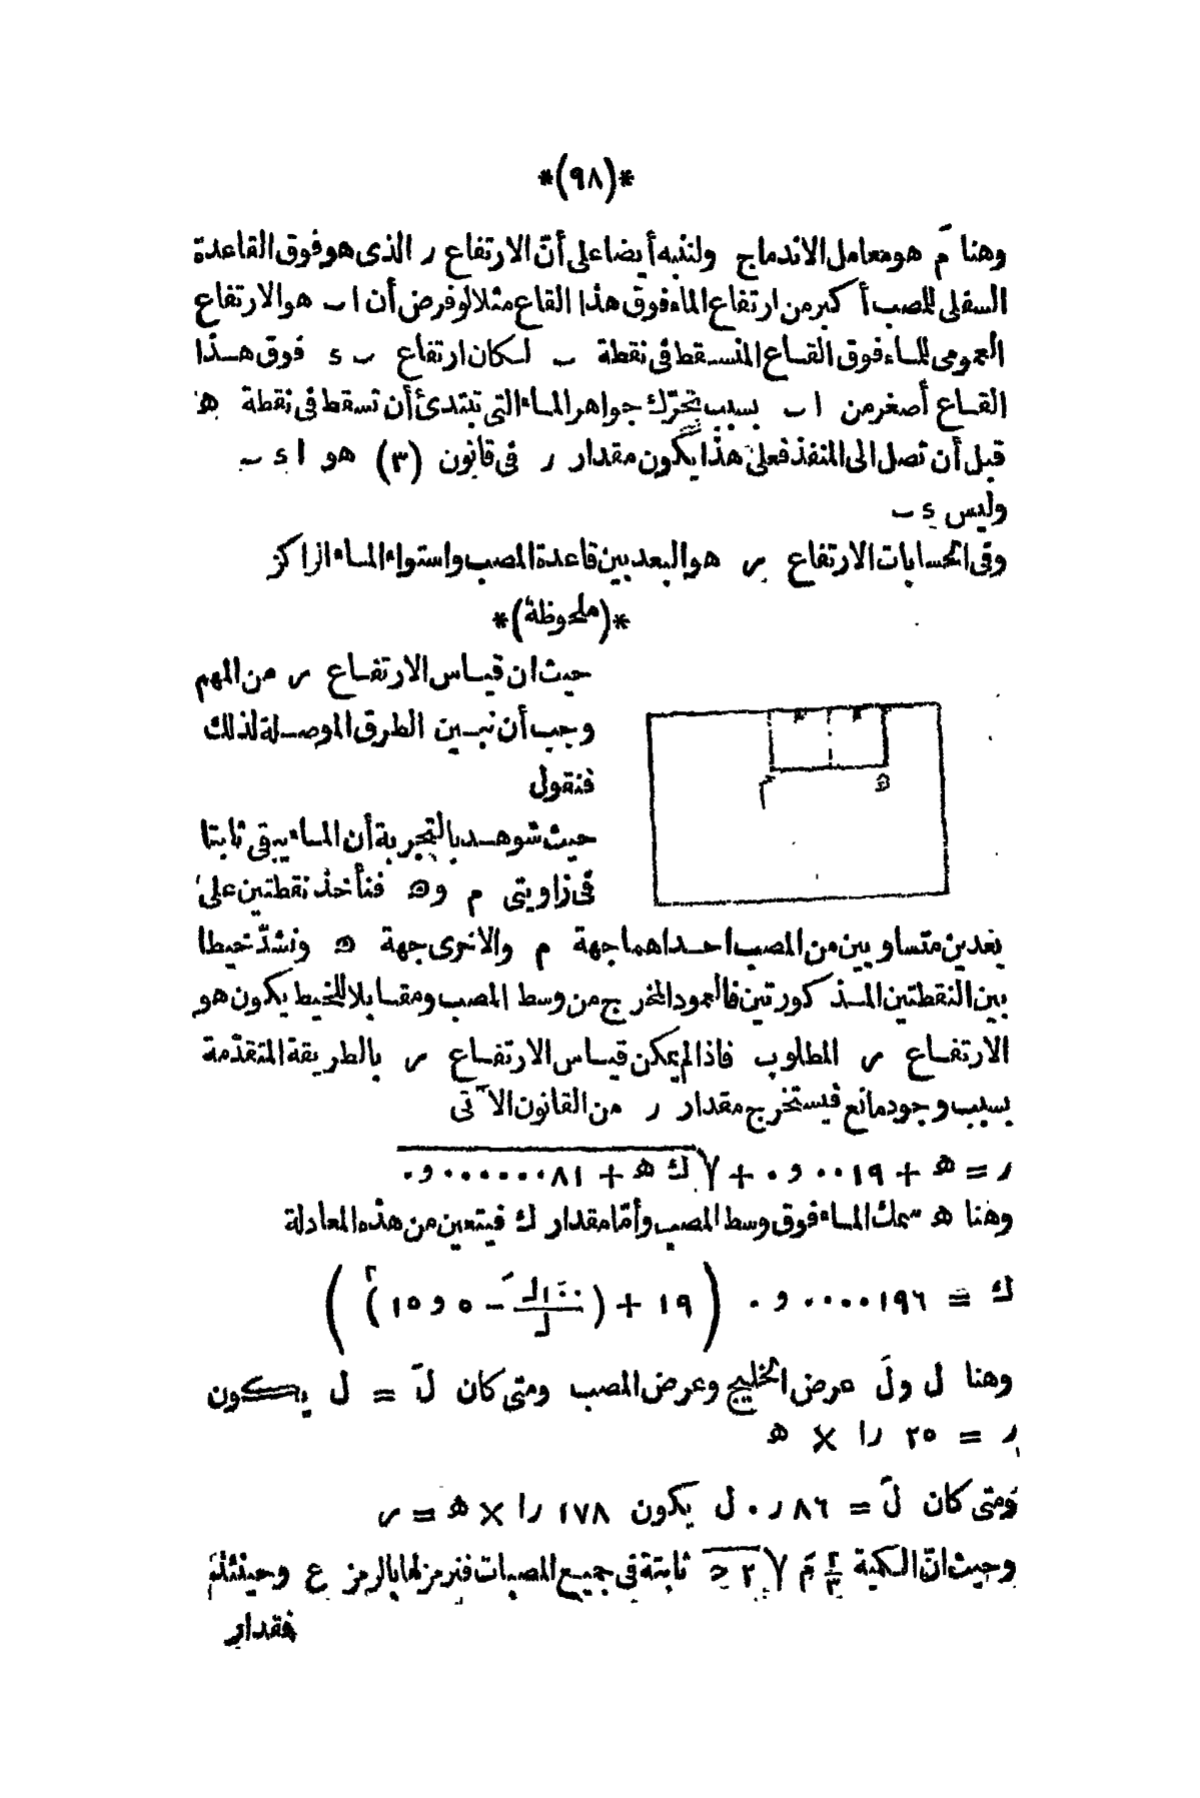 *(٩٨)*
وهنا مَ هو معامل الاندماج ولننبه أيضا على أنّ الارتفاع ر الذى هو فوق القاعدة
السفلى للمصب أكبر من ارتفاع الماء فوق هذا القاع مثلا لو فرض أن ا ب هو الارتفاع
العمومى للماء فوق القاع المنسقط فى نقطة ب لكان ارتفاع ب د فوق هذا
القاع أصغر من ا ب بسبب تحرّك جواهر الماء التى تبتدئ أن تسقط فى نقطة ھ
قبل أن تصل الى المنفذ فعلى هذا يكون مقدار ر فى قانون (٣) هو ا د ب
وليس د ب
وفى الحسابات الارتفاع ر هو البعد بين قاعدة المصب واستواء الماء الراكز
*(ملحوظة)*
حيث ان قياس الارتفاع ر من المهم
وجب أن نبين الطرق الموصلة لذلك
فنقول
حيث شوهد بالتجربة أن الماء يبقى ثابتا
فى زاويتى م و ه فنأخذ نقطتين على
م ه
بعدين متساويين من المصب احداهما جهة م والاخرى جهة ه ونشدّ خيطا
بين النقطتين المذكورتين فالعمود المخرج من وسط المصب ومقابلا للخيط يكون هو
الارتفاع ر المطلوب فاذا لم يمكن قياس الارتفاع ر بالطريقة المتقدّمة
بسبب وجود مانع فيستخرج مقدار ر من القانون الآتى
ر = ھ + ٠٠١٩ و ٠ + √ ك ھ + ٠٠٠٠٠٠٨١ و ٠
وهنا ھ سمك الماء فوق وسط المصب وأمّا مقدار ك فيتعين من هذه المعادلة
ك = ٠٠٠٠١٩٦ و ٠ (١٩ + (١٠٠ لَ / ل − ٥ و ١٥)٢)
وهنا ل ولَ عرض الخليج وعرض المصب ومتى كان لَ = ل يكون
ر = ٢٥ ر١ × ھ
ومتى كان لَ = ٨٦ ر ٠ ل يكون ١٧٨ ر١ × ھ = ر
وحيث انّ الكمية ٢/٣ مَ √ ٢ ح ثابتة فى جميع المصبات فنرمز لها بالرمز ع وحينئذ
فقدار